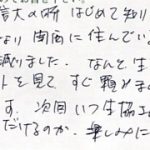 信大の研 はじめて知り
なり 関西に住んでい
減りました。なんと生
トを見て すぐ頼みま
す。次回いつ生協に
だけるのか、楽しみに